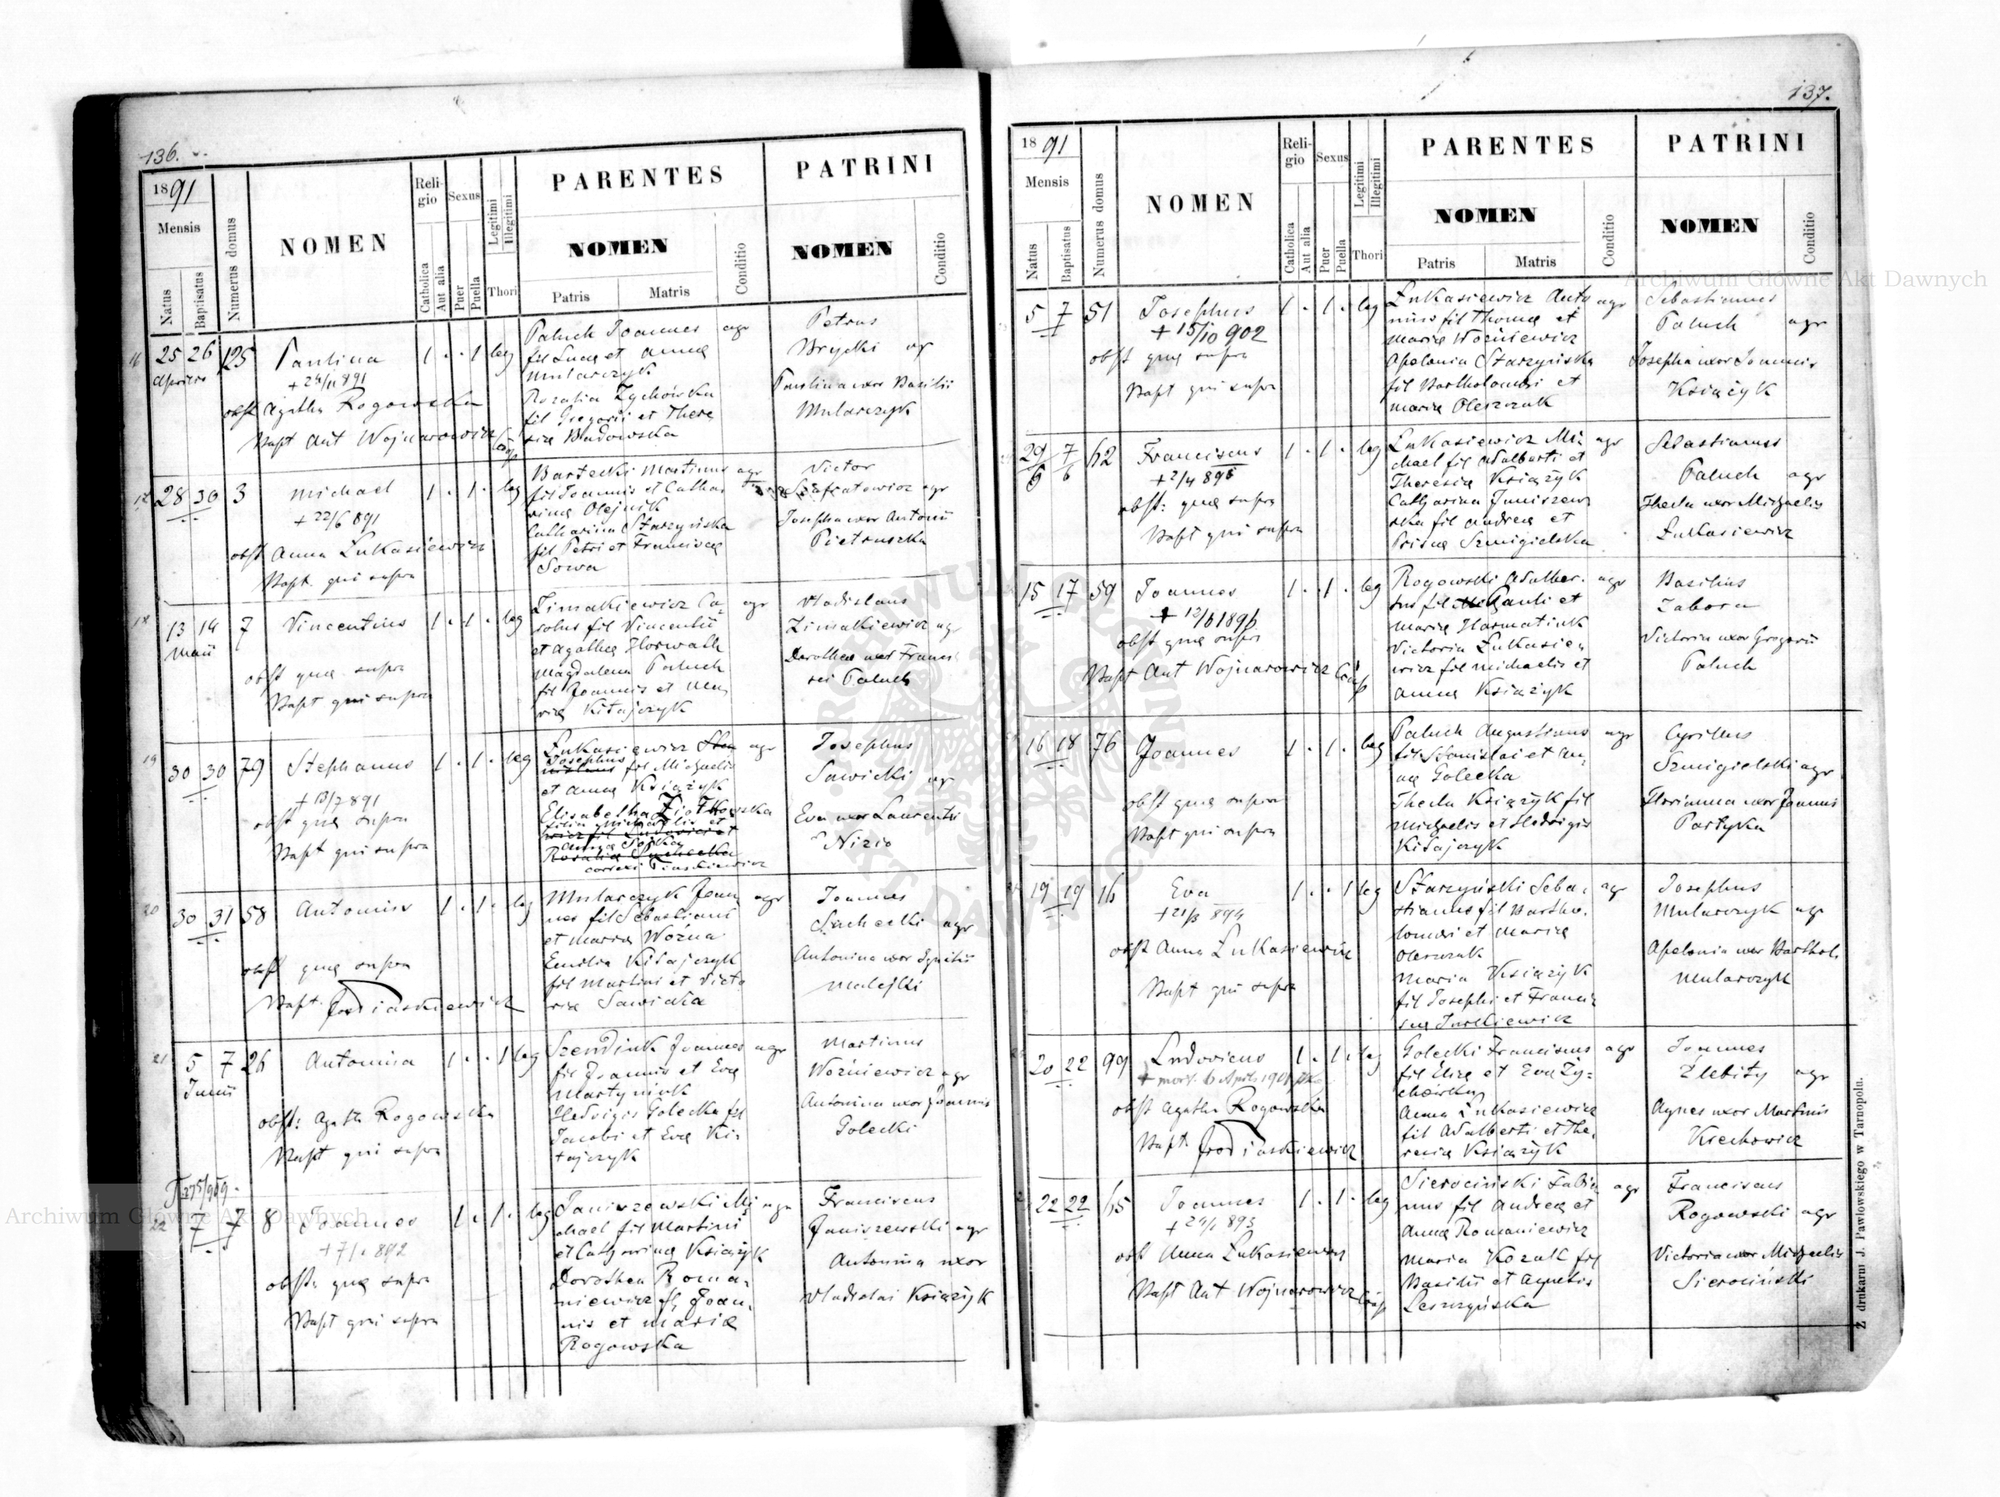 136.
1891
Mensis
Natus
Baptisatus
Numerus domus
NOMEN
Religio
Catholica
Aut alia
Sexus
Puer
Puella
Legitimi
Illegitimi
Thori
PARENTES
NOMEN
Patris
Matris
Conditio
PATRINI
NOMEN
Conditio
25 26 125 Paulina 1 . . 1 leg
Aprilis
obst Agatha Rogowska
Bapt Ant Wojnarowicz Coop
Paluch Joannes agr
fil Lucæ et Annæ
Mularczyk
Rozalia Zychówka
fil Gregorii et There
siæ Bladowska
Petrus
Brycki ag
Paulina uxor Basilii
Mularczyk
28 30 3 Michael 1 . 1 . leg
+ 22/6 891
obst Anna Łukasiewicz
Bapt. qui supra
Bartecki Martinus agr
fil Joannis et Catha
rinæ Olejnik
Catharina Starzyńska
fil Petri et Franciscæ
Sowa
Victor
Szafratowicz agr
Josepha uxor Antonii
Pietruszka
13 14 7 Vincentius 1 . 1 . leg
Maii
obst quæ supra
Bapt qui supra
Zimakiewicz Ca agr
rolus fil Vincentii
et Agathæ Horwath
Magdalena Paluch
fil Joannis et Ma
riæ Kitajczyk
Vladislaus
Zimakiewicz agr
Dorothea uxor Franci
sci Paluch
19
30 30 79 Stephanus 1 . 1 . leg
+ 13/7 891
obst quæ supra
Bapt qui supra
Łukasiewicz agr
Josephus fil Michaelis
et Annæ Książyk
Elisabetha Ziółkowska
Josephus
Sawicki agr
Eva uxor Laurentii
Nizio
20
30 31 58 Antonius 1 . 1 . leg
obst quæ supra
Bapt. Jaskiewicz
Mularczyk Joan agr
nes fil Sebastiani
et Mariæ Woźna
Emilia Kitajczyk
fil Martini et Victo
riæ Sawicka
Joannes
Sachecki agr
Antonina uxor Ignatii
Malejki
21
5 7 26 Antonina 1 . . 1 leg
Junii
obst: Agatha Rogowska
Bapt qui supra
Szendiuk Joannes agr
fil Joannis et Evæ
Martyniuk
Hedvigis Golecka fil
Jacobi et Evæ Ki
tajczyk
Martinus
Woźniewicz agr
Antonina uxor Joannis
Golecki
22
7 7 8 Joannes 1 . 1 . leg
obst: quæ supra
Bapt qui supra
Janiszewski Mi agr
chael fil Martini
et Catharinæ Książyk
Dorothea Roma
niewicz fil Joan
nis et Mariæ
Rogowska
Franciscus
Janiszewski agr
Antonina uxor
Vladislai Książyk
137.
1891
Mensis
Natus
Baptisatus
Numerus domus
NOMEN
Religio
Catholica
Aut alia
Sexus
Puer
Puella
Legitimi
Illegitimi
Thori
PARENTES
NOMEN
Patris
Matris
Conditio
PATRINI
NOMEN
Conditio
5 7 51 Josephus 1 . 1 . leg
+ 15/10 902
obst quæ supra
Bapt qui supra
Łukasiewicz Anto agr
nius fil Thomæ et
Mariæ Woźniewicz
Apolonia Starzyńska
fil Bartholomæi et
Mariæ Oleszczuk
Sebastianus
Paluch agr
Josepha uxor Joannis
Książyk
29 7 62 Franciscus 1 . 1 . leg
5 6
obst: quæ supra
Bapt qui supra
Łukasiewicz Mi agr
chael fil Adalberti et
Theresiæ Książyk
Catharina Janiszew
ska fil Andreæ et
Priscæ Szmigielska
Sebastianus
Paluch agr
Thecla uxor Michaelis
Łukasiewicz
15 17 59 Joannes 1 . 1 . leg
obst quæ supra
Bapt Ant Wojnarowicz Coop
Rogowski Adalber agr
tus fil Pauli et
Mariæ Harmatiuk
Victoria Łukasie
wicz fil Michaelis et
Annæ Książyk
Basilius
Zabora
Victoria uxor Gregorii
Paluch
16 18 76 Joannes 1 . 1 . leg
obst quæ supra
Bapt qui supra
Paluch Augustinus agr
fil Stanislai et An
næ Golecka
Thecla Książyk fil
Michaelis et Hedvigis
Kitajczyk
Cyrillus
Szmigielski agr
Florianna uxor Joannis
Partyka
19 19 16 Eva 1 . . 1 leg
+ 21/3 894
obst Anna Łukasiewicz
Bapt qui supra
Starzyński Seba agr
stianus fil Bartho
lomæi et Mariæ
Oleszczuk
Maria Książyk
fil Josephi et Francis
cæ Jurkiewicz
Josephus
Mularczyk agr
Apolonia uxor Barthol.
Mularczyk
20 22 99 Ludovicus 1 . 1 . leg
obst Agatha Rogowska
Bapt. Jaskiewicz
Golecki Franciscus agr
fil Eliæ et Evæ Zy
chówka
Anna Łukasiewicz
fil Adalberti et The
resiæ Książyk
Joannes
Źlebity agr
Agnes uxor Martinis
Kiechowicz
22 22 65 Joannes 1 . 1 . leg
obst Anna Łukasiewicz
Bapt Ant Wojnarowicz Coop
Sierociński Fabia agr
nus fil Andreæ et
Annæ Romaniewicz
Maria Kozak fil
Basilii et Agnetis
Leszczyńska
Franciscus
Rogowski agr
Victoria uxor Michaelis
Sierociński
Z drukarni J. Pawłowskiego w Tarnopolu.
Archiwum Główne Akt Dawnych
Archiwum Główne Akt Dawnych
ARCHIWUM GŁÓWNE AKT DAWNYCH